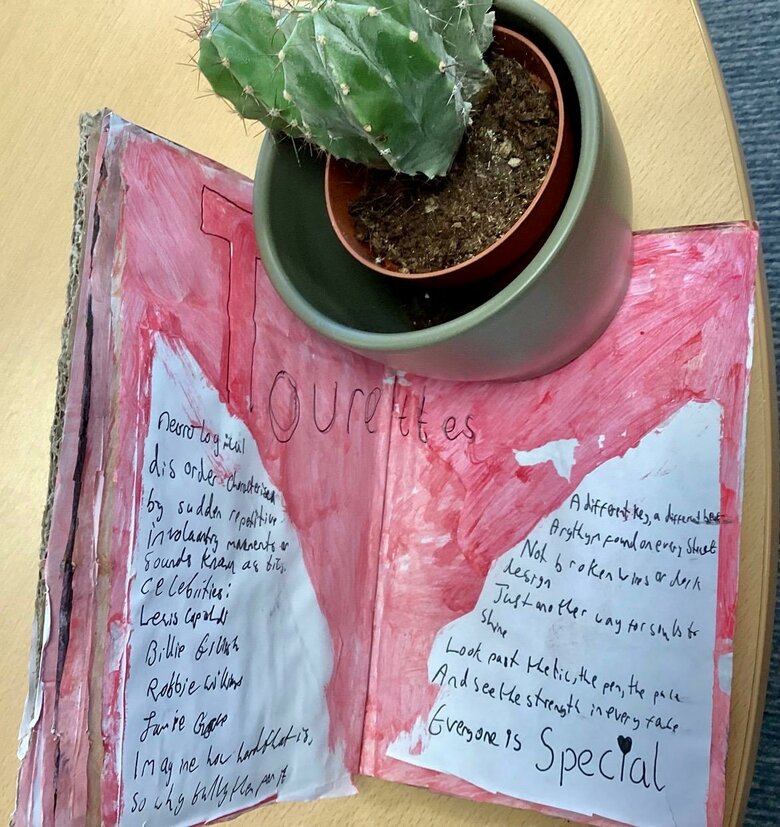 Tourettes
Neurological
disorder characterized
by sudden repetitive
involuntry movments or
sounds known as tics.
celebrities:
Lewis Capaldi
Billie Eilish
Robbie Williams
Imagine how hard that is,
so why bully them
A different key, a different beat
A rythyn found on every street
Not broken lines or dark
design
Just another way for souls to
shine
Look past the tic, the
And see the strength in every
Everyone is Special